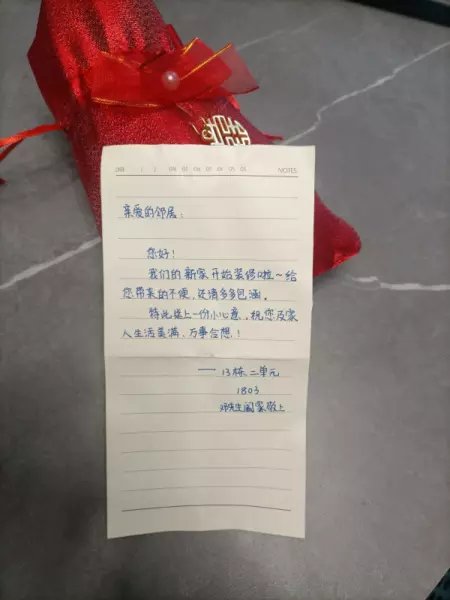 NOTES
亲爱的邻居:
您好!
我们的新家开始装修啦~给
您带来的不便,还请多多包涵。
特此送上一份小心意,祝您及家
人生活美满、万事合想!
——13栋二单元
1803
邓先生阖家敬上